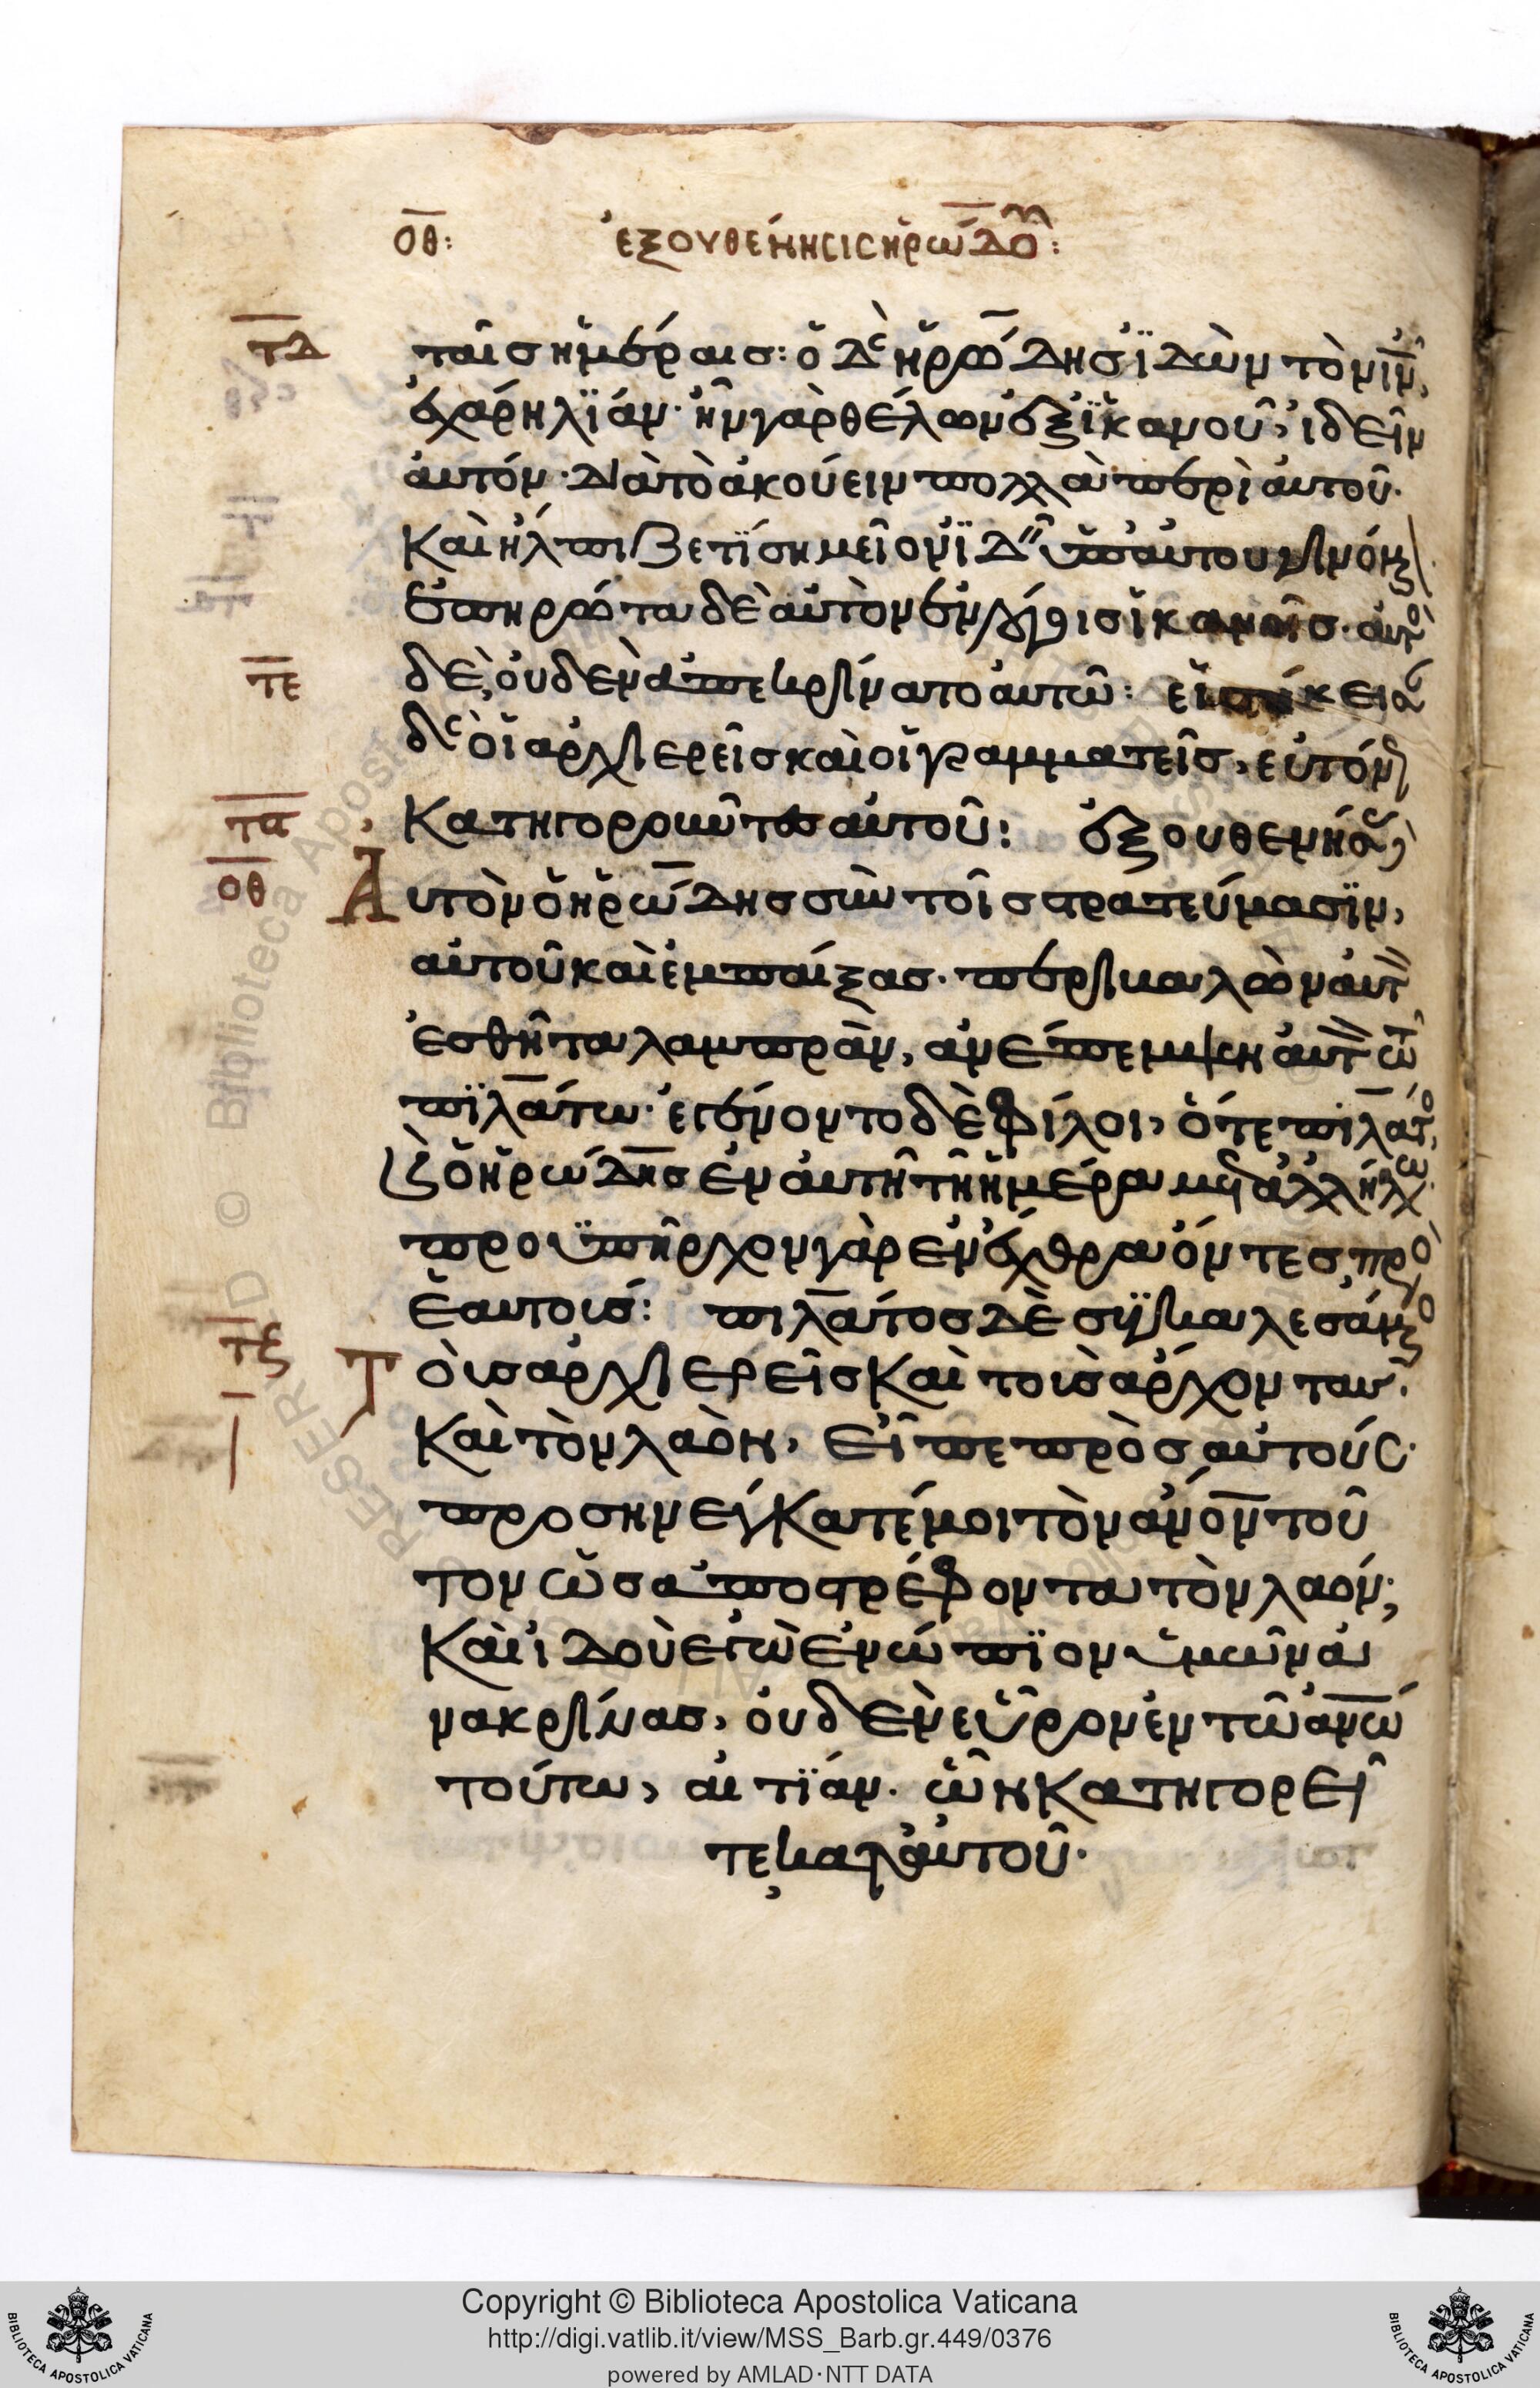 οθ: ἐξουθένησις ἡρώδου:
τδ ταῖς ἡμέραις: ὁ δὲ ἡρώδησ ἰδὼν τὸν ιν,
ἐχάρη λΐαν· ἦν γὰρ θέλων ἐξ ἱκανοῦ, ἰδεῖν
αὐτόν· διὰ τὸ ἀκούειν πολλὰ περὶ αὐτοῦ·
Καὶ ἤλπιζε τΐ σημεῖον ϊδεῖν ὑπ' αὐτοῦ γινόμενον
ἐπηρώτα δὲ αὐτὸν ἐν λόγοισ ἱκανοῖσ· αὐτὸ
τε δὲ, οὐδὲν ἀπεκρίνατο αὐτῶ: εἱστήκεισαν
δὲ οἱ ἀρχιερεῖσ καὶ οἱ γραμματεῖσ, εὐτόνωσ
τϛ Κατηγοροῦντεσ αὐτοῦ: ἐξουθενήσασ
οθ Αὐτὸν ὁ ἡρώδησ σὺν τοῖσ στρατεύμασϊν,
αὐτοῦ καὶ ἐμπαίξασ· περικαλῶν αὐτ
ἐσθῆτα λαμπρὰν, ἀνέπεμψεν αὐτ τῶ
πϊλάτω· ἐγένοντο δὲ φίλοι, ὅτε πιλάτο
ϗ ὁ ἡρώδησ ἐν αὐτῆ τῆ ἡμέρα μετ ἀλλήλω
προϋπῆρχον γὰρ ἐν ἔχθρα ὄντεσ, πρὸ
ἑαυτοισ: πιλάτοσ δὲ συγκαλεσάμενο
τζ Τοὺσ ἀρχιερεῖσ Καὶ τοὺσ ἄρχοντασ·
Καὶ τὸν λαὸν, εἶπε πρὸσ αὐτούς·
προσηνέγκατέ μοι τὸν ανον τοῦ
τον ὡσ ἀποστρέφοντα τὸν λαόν·
Καὶ ἰδοὺ ἐγὼ ἐνώπϊον ὑμῶν ἀ
νακρίνασ, οὐδὲν εὗρον ἐν τῶ ανω
τούτω, αἰτΐαν· ὧν Κατηγορεῖ
τε κατ αὐτοῦ·
RESERVED © Biblioteca Apost
Copyright © Biblioteca Apostolica Vaticana
http://digi.vatlib.it/view/MSS_Barb.gr.449/0376
powered by AMLAD·NTT DATA
BIBLIOTECA APOSTOLICA VATICANA
BIBLIOTECA APOSTOLICA VATICANA